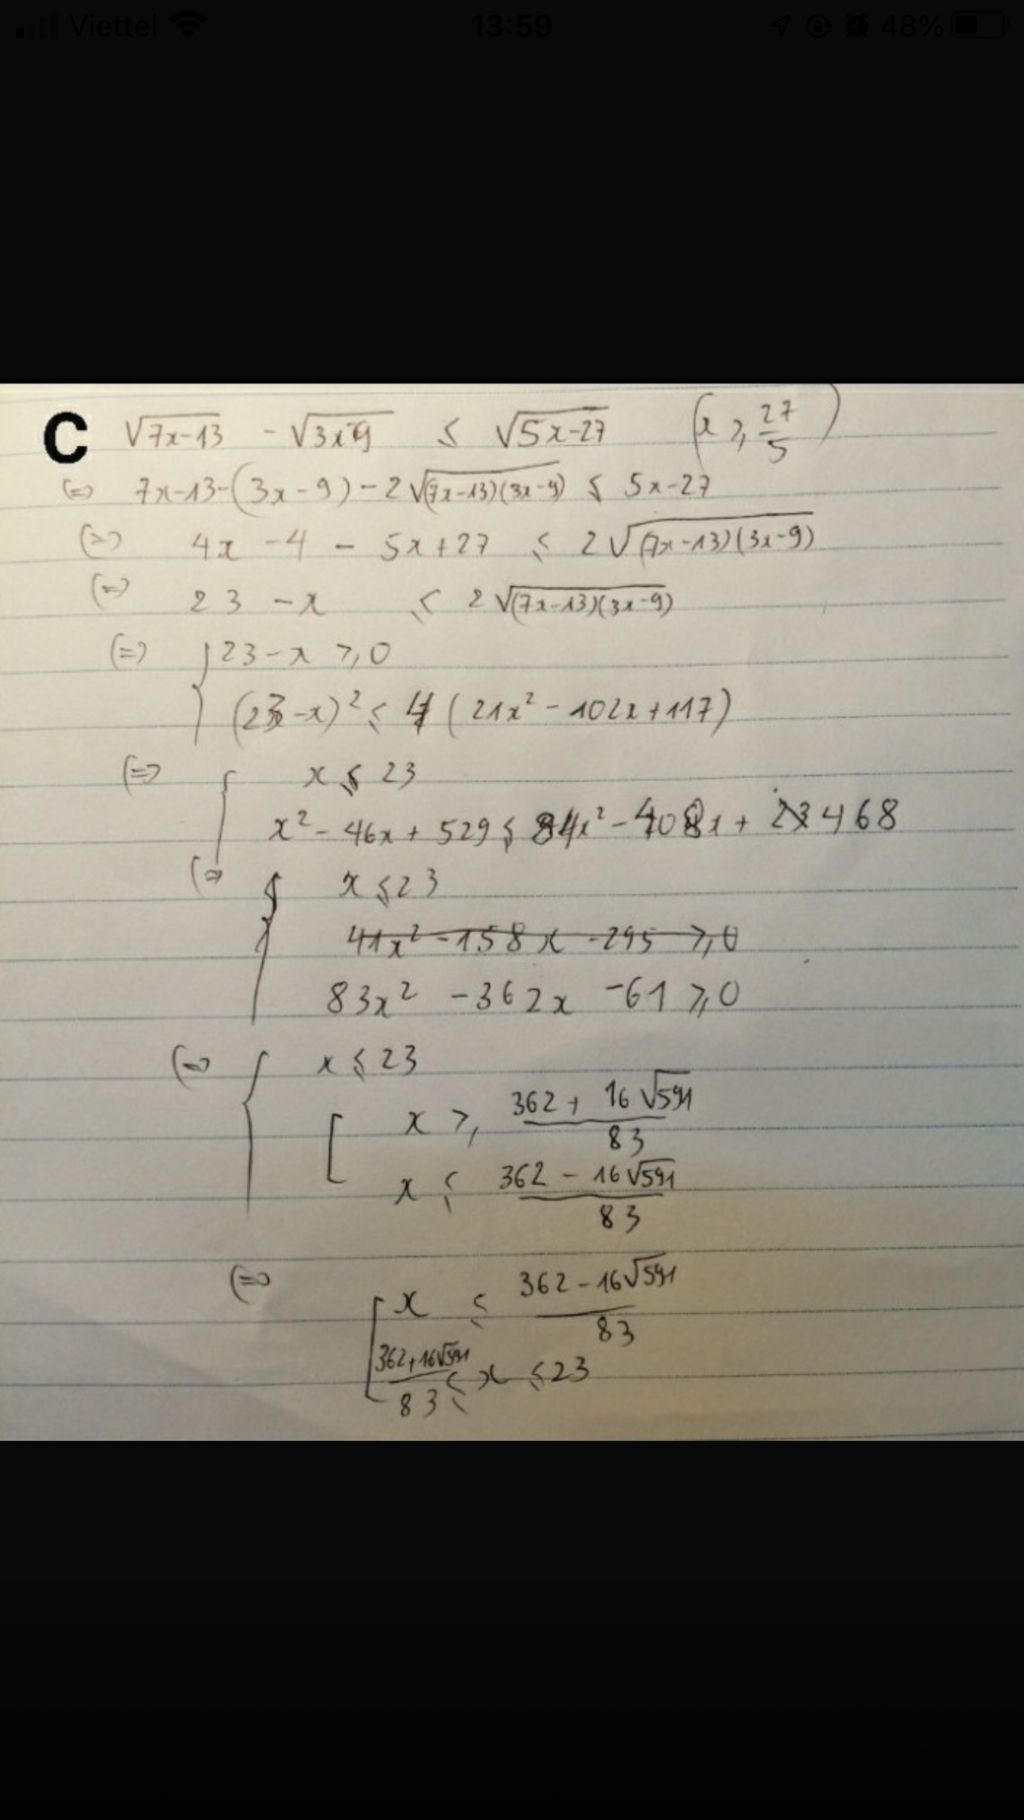 Viettel 13:59 48%
C √(7x-13) - √(3x-9) ≤ √(5x-27) (x ≥ 27/5)
(=) 7x-13-(3x-9)-2√((7x-13)(3x-9)) ≤ 5x-27
(=) 4x - 4 - 5x + 27 ≤ 2√((7x-13)(3x-9))
(=) 23 - x ≤ 2√((7x-13)(3x-9))
(=) { 23 - x ≥ 0
(23-x)² ≤ 4 (21x² - 102x + 117)
(=) { x ≤ 23
x² - 46x + 529 ≤ 84x² - 408x + 468
(=) { x ≤ 23
41x² - 158x - 295 ≥ 0
83x² - 362x - 61 ≥ 0
(=) { x ≤ 23
[ x ≥ (362 + 16√591)/83
x ≤ (362 - 16√591)/83
(=) [ x ≤ (362 - 16√591)/83
(362+16√591)/83 ≤ x ≤ 23